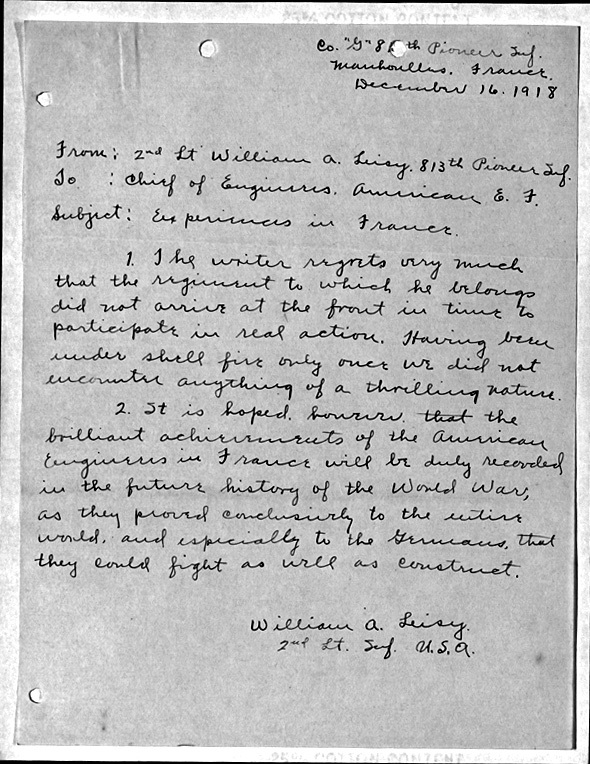 Co. "G" 8 th Pioneer Inf.
France.
December 16, 1918
From: 2nd Lt William A. Leisy, 813th Pioneer Inf.
To : Chief of Engineers, American E. F.
Subject: Experiences in France.
1. The writer regrets very much
that the regiment to which he belongs
did not arrive at the front in time to
participate in real action. Having been
under shell fire only once we did not
encounter anything of a thrilling nature.
2. It is hoped, however, that the
brilliant achievements of the American
Engineers in France will be duly recorded
in the future history of the World War,
as they proved conclusively to the entire
world, and especially to the Germans, that
they could fight as well as construct.
William A. Leisy.
2nd Lt. Inf. U.S.A.